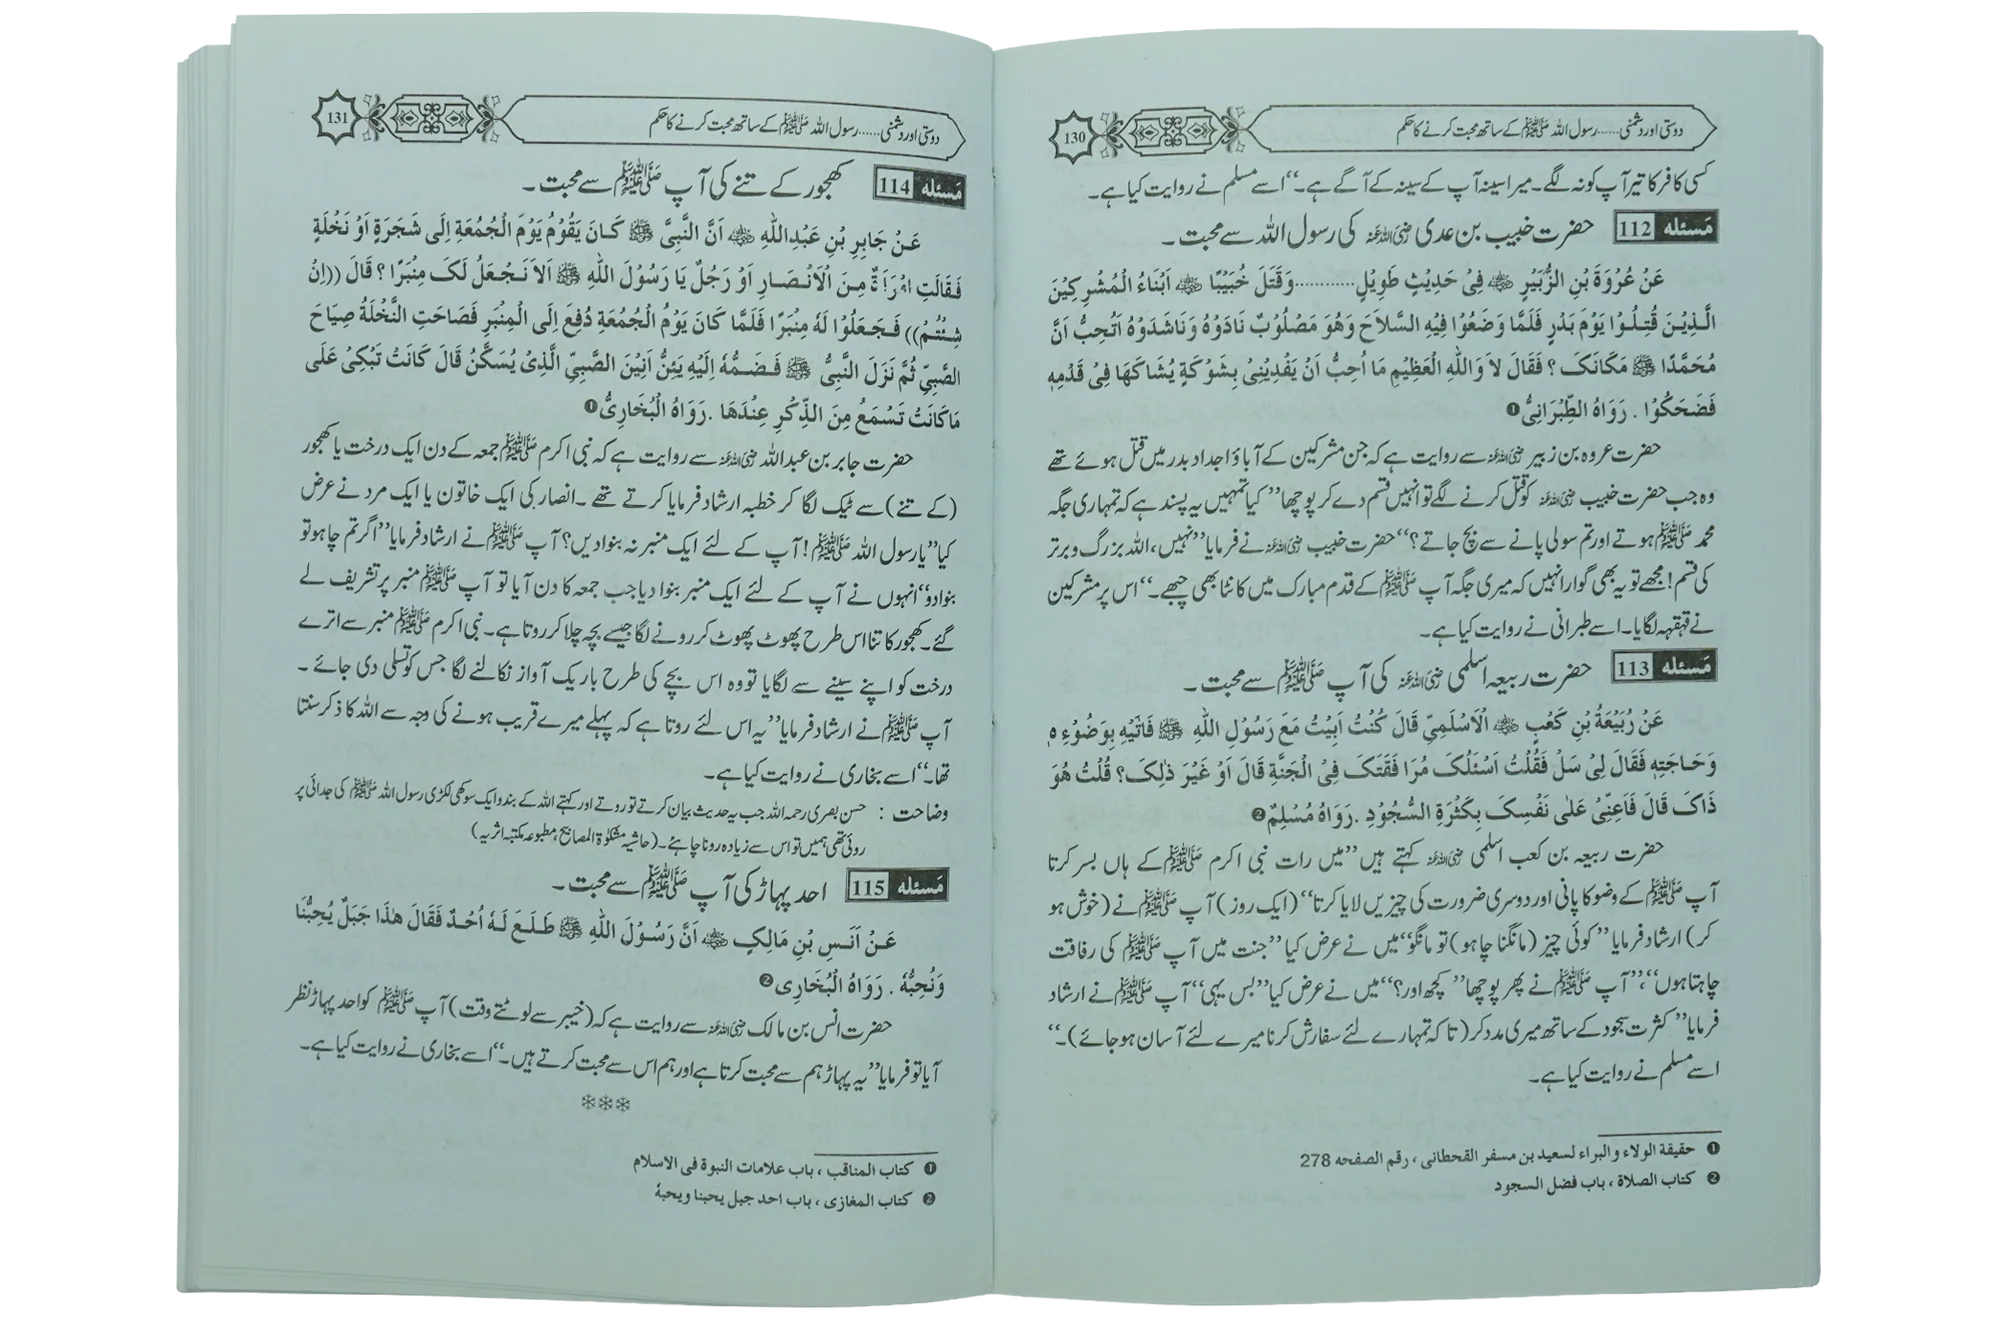 دوستی اور دشمنی......رسول اللہ ﷺ کے ساتھ محبت کرنے کا حکم
130
کسی کافر کا تیر آپ کو نہ لگے۔ میرا سینہ آپ کے سینہ کے آگے ہے۔‘‘ اسے مسلم نے روایت کیا ہے۔
مَسئلہ 112 حضرت خبیب بن عدی رضی اللہ عنہ کی رسول اللہ سے محبت۔
عَنْ عُرْوَةَ بْنِ الزُّبَيْرِ ؓ فِیْ حَدِيْثٍ طَوِيْلٍ............وَقَتَلَ خُبَيْبًا ؓ اَبْنَاءُ الْمُشْرِكِيْنَ
الَّذِيْنَ قُتِلُوْا يَوْمَ بَدْرٍ فَلَمَّا وَضَعُوْا فِيْهِ السَّلاَحَ وَهُوَ مَصْلُوْبٌ نَادَوْهُ وَنَاشَدُوْهُ اَتُحِبُّ اَنَّ
مُحَمَّدًا ﷺ مَكَانَكَ ؟ فَقَالَ لاَ وَاللّٰهِ الْعَظِيْمِ مَا اُحِبُّ اَنْ يَفْدِيَنِیْ بِشَوْكَةٍ يُشَاكَهَا فِیْ قَدْمِهٖ
فَضَحَكُوْا . رَوَاهُ الطِّبْرَانِیُّ ❶
حضرت عروہ بن زبیر رضی اللہ عنہ سے روایت ہے کہ جن مشرکین کے آباؤ اجداد بدر میں قتل ہوئے تھے
وہ جب حضرت خبیب رضی اللہ عنہ کو قتل کرنے لگے تو انہیں قسم دے کر پوچھا’’ کیا تمہیں یہ پسند ہے کہ تمہاری جگہ
محمد ﷺ ہوتے اور تم سولی پانے سے بچ جاتے؟‘‘ حضرت خبیب رضی اللہ عنہ نے فرمایا’’نہیں، اللہ بزرگ و برتر
کی قسم! مجھے تو یہ بھی گوارا نہیں کہ میری جگہ آپ ﷺ کے قدم مبارک میں کانٹا بھی چبھے۔‘‘ اس پر مشرکین
نے قہقہہ لگایا۔ اسے طبرانی نے روایت کیا ہے۔
مَسئلہ 113 حضرت ربیعہ اسلمی رضی اللہ عنہ کی آپ ﷺ سے محبت۔
عَنْ رُبَيْعَةَ بْنِ كَعْبٍ ؓ الْاَسْلَمِیِّ قَالَ كُنْتُ اَبِيْتُ مَعَ رَسُوْلِ اللّٰهِ ﷺ فَاٰتَيْهِ بِوَضُوْءِهٖ
وَحَاجَتِهٖ فَقَالَ لِیْ سَلْ فَقُلْتُ اَسْئَلُكَ مُرَا فَقَتَكَ فِیْ الْجَنَّةِ قَالَ اَوْ غَيْرَ ذٰلِكَ؟ قُلْتُ هُوَ
ذَاكَ قَالَ فَاَعِنِّیْ عَلٰی نَفْسِكَ بِكَثْرَةِ السُّجُوْدِ .رَوَاهُ مُسْلِمٌ ❷
حضرت ربیعہ بن کعب اسلمی رضی اللہ عنہ کہتے ہیں ’’میں رات نبی اکرم ﷺ کے ہاں بسر کرتا
آپ ﷺ کے وضو کا پانی اور دوسری ضرورت کی چیزیں لایا کرتا‘‘ (ایک روز) آپ ﷺ نے (خوش ہو
کر) ارشاد فرمایا’’ کوئی چیز (مانگنا چاہو) تو مانگو‘‘میں نے عرض کیا ’’جنت میں آپ ﷺ کی رفاقت
چاہتا ہوں‘‘،’’آپ ﷺ نے پھر پوچھا’’ کچھ اور؟‘‘ میں نے عرض کیا’’بس یہی‘‘ آپ ﷺ نے ارشاد
فرمایا’’ کثرت سجود کے ساتھ میری مدد کر (تا کہ تمہارے لئے سفارش کرنا میرے لئے آسان ہو جائے)۔‘‘
اسے مسلم نے روایت کیا ہے۔
❶ حقيقة الولاء والبراء لسعيد بن مسفر القحطانی ، رقم الصفحه 278
❷ كتاب الصلاة ، باب فضل السجود
دوستی اور دشمنی......رسول اللہ ﷺ کے ساتھ محبت کرنے کا حکم
131
مَسئلہ 114 کھجور کے تنے کی آپ ﷺ سے محبت۔
عَنْ جَابِرِ بْنِ عَبْدِاللّٰهِ ؓ اَنَّ النَّبِیَّ ﷺ كَانَ يَقُوْمُ يَوْمَ الْجُمُعَةِ اِلَی شَجَرَةٍ اَوْ نَخْلَةٍ
فَقَالَتِ امْرَاَةٌ مِنَ الْاَنْصَارِ اَوْ رَجُلٌ يَا رَسُوْلَ اللّٰهِ ﷺ اَلاَ نَجْعَلُ لَكَ مِنْبَرًا ؟ قَالَ ((اِنْ
شِئْتُمْ)) فَجَعَلُوْا لَهٗ مِنْبَرًا فَلَمَّا كَانَ يَوْمُ الْجُمُعَةِ دُفِعَ اِلَی الْمِنْبَرِ فَصَاحَتِ النَّخْلَةُ صِيَاحَ
الصَّبِیِّ ثُمَّ نَزَلَ النَّبِیُّ ﷺ فَضَمُّهٗ اِلَيْهِ يَئِنُّ اَنِيْنَ الصَّبِیِّ الَّذِیْ يُسَكَّنُ قَالَ كَانَتْ تَبْكِیْ عَلَی
مَا كَانَتْ تَسْمَعُ مِنَ الذِّكْرِ عِنْدَهَا .رَوَاهُ الْبُخَارِیُّ ❶
حضرت جابر بن عبداللہ رضی اللہ عنہ سے روایت ہے کہ نبی اکرم ﷺ جمعہ کے دن ایک درخت یا کھجور
(کے تنے) سے ٹیک لگا کر خطبہ ارشاد فرمایا کرتے تھے ۔ انصار کی ایک خاتون یا ایک مرد نے عرض
کیا’’یا رسول اللہ ﷺ! آپ کے لئے ایک منبر نہ بنوادیں؟ آپ ﷺ نے ارشاد فرمایا’’اگر تم چاہو تو
بنوادو‘‘انہوں نے آپ کے لئے ایک منبر بنوا دیا جب جمعہ کا دن آیا تو آپ ﷺ منبر پر تشریف لے
گئے۔ کھجور کا تنا اس طرح پھوٹ پھوٹ کر رونے لگا جیسے بچہ چلا کر روتا ہے۔ نبی اکرم ﷺ منبر سے اترے
درخت کو اپنے سینے سے لگایا تو وہ اس بچے کی طرح باریک آواز نکالنے لگا جس کو تسلی دی جائے ۔
آپ ﷺ نے ارشاد فرمایا’’یہ اس لئے روتا ہے کہ پہلے میرے قریب ہونے کی وجہ سے اللہ کا ذکر سنتا
تھا۔‘‘ اسے بخاری نے روایت کیا ہے۔
وضاحت : حسن بصری رحمہ اللہ جب یہ حدیث بیان کرتے تو روتے اور کہتے اللہ کے بندو ایک سوکھی لکڑی رسول اللہ ﷺ کی جدائی پر
روئی تھی ہمیں تو اس سے زیادہ رونا چاہئے۔ (حاشیہ مشکوٰۃ المصابیح، مطبوعہ مکتبہ اثریہ)
مَسئلہ 115 احد پہاڑ کی آپ ﷺ سے محبت۔
عَنْ اَنَسِ بْنِ مَالِكٍ ؓ اَنَّ رَسُوْلَ اللّٰهِ ﷺ طَلَعَ لَهٗ اُحُدٌ فَقَالَ هٰذَا جَبَلٌ يُحِبُّنَا
وَنُحِبُّهٗ . رَوَاهُ الْبُخَارِی ❷
حضرت انس بن مالک رضی اللہ عنہ سے روایت ہے کہ (خیبر سے لوٹتے وقت) آپ ﷺ کو احد پہاڑ نظر
آیا تو فرمایا’’یہ پہاڑ ہم سے محبت کرتا ہے اور ہم اس سے محبت کرتے ہیں۔‘‘ اسے بخاری نے روایت کیا ہے۔
❄❄❄
❶ كتاب المناقب ، باب علامات النبوة فی الاسلام
❷ كتاب المغازی ، باب احد جبل يحبنا ويحبهٗ